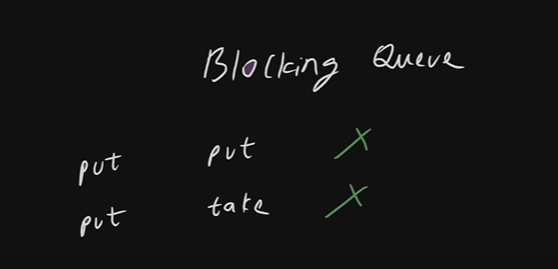 Blocking Queue
put put X
put take X